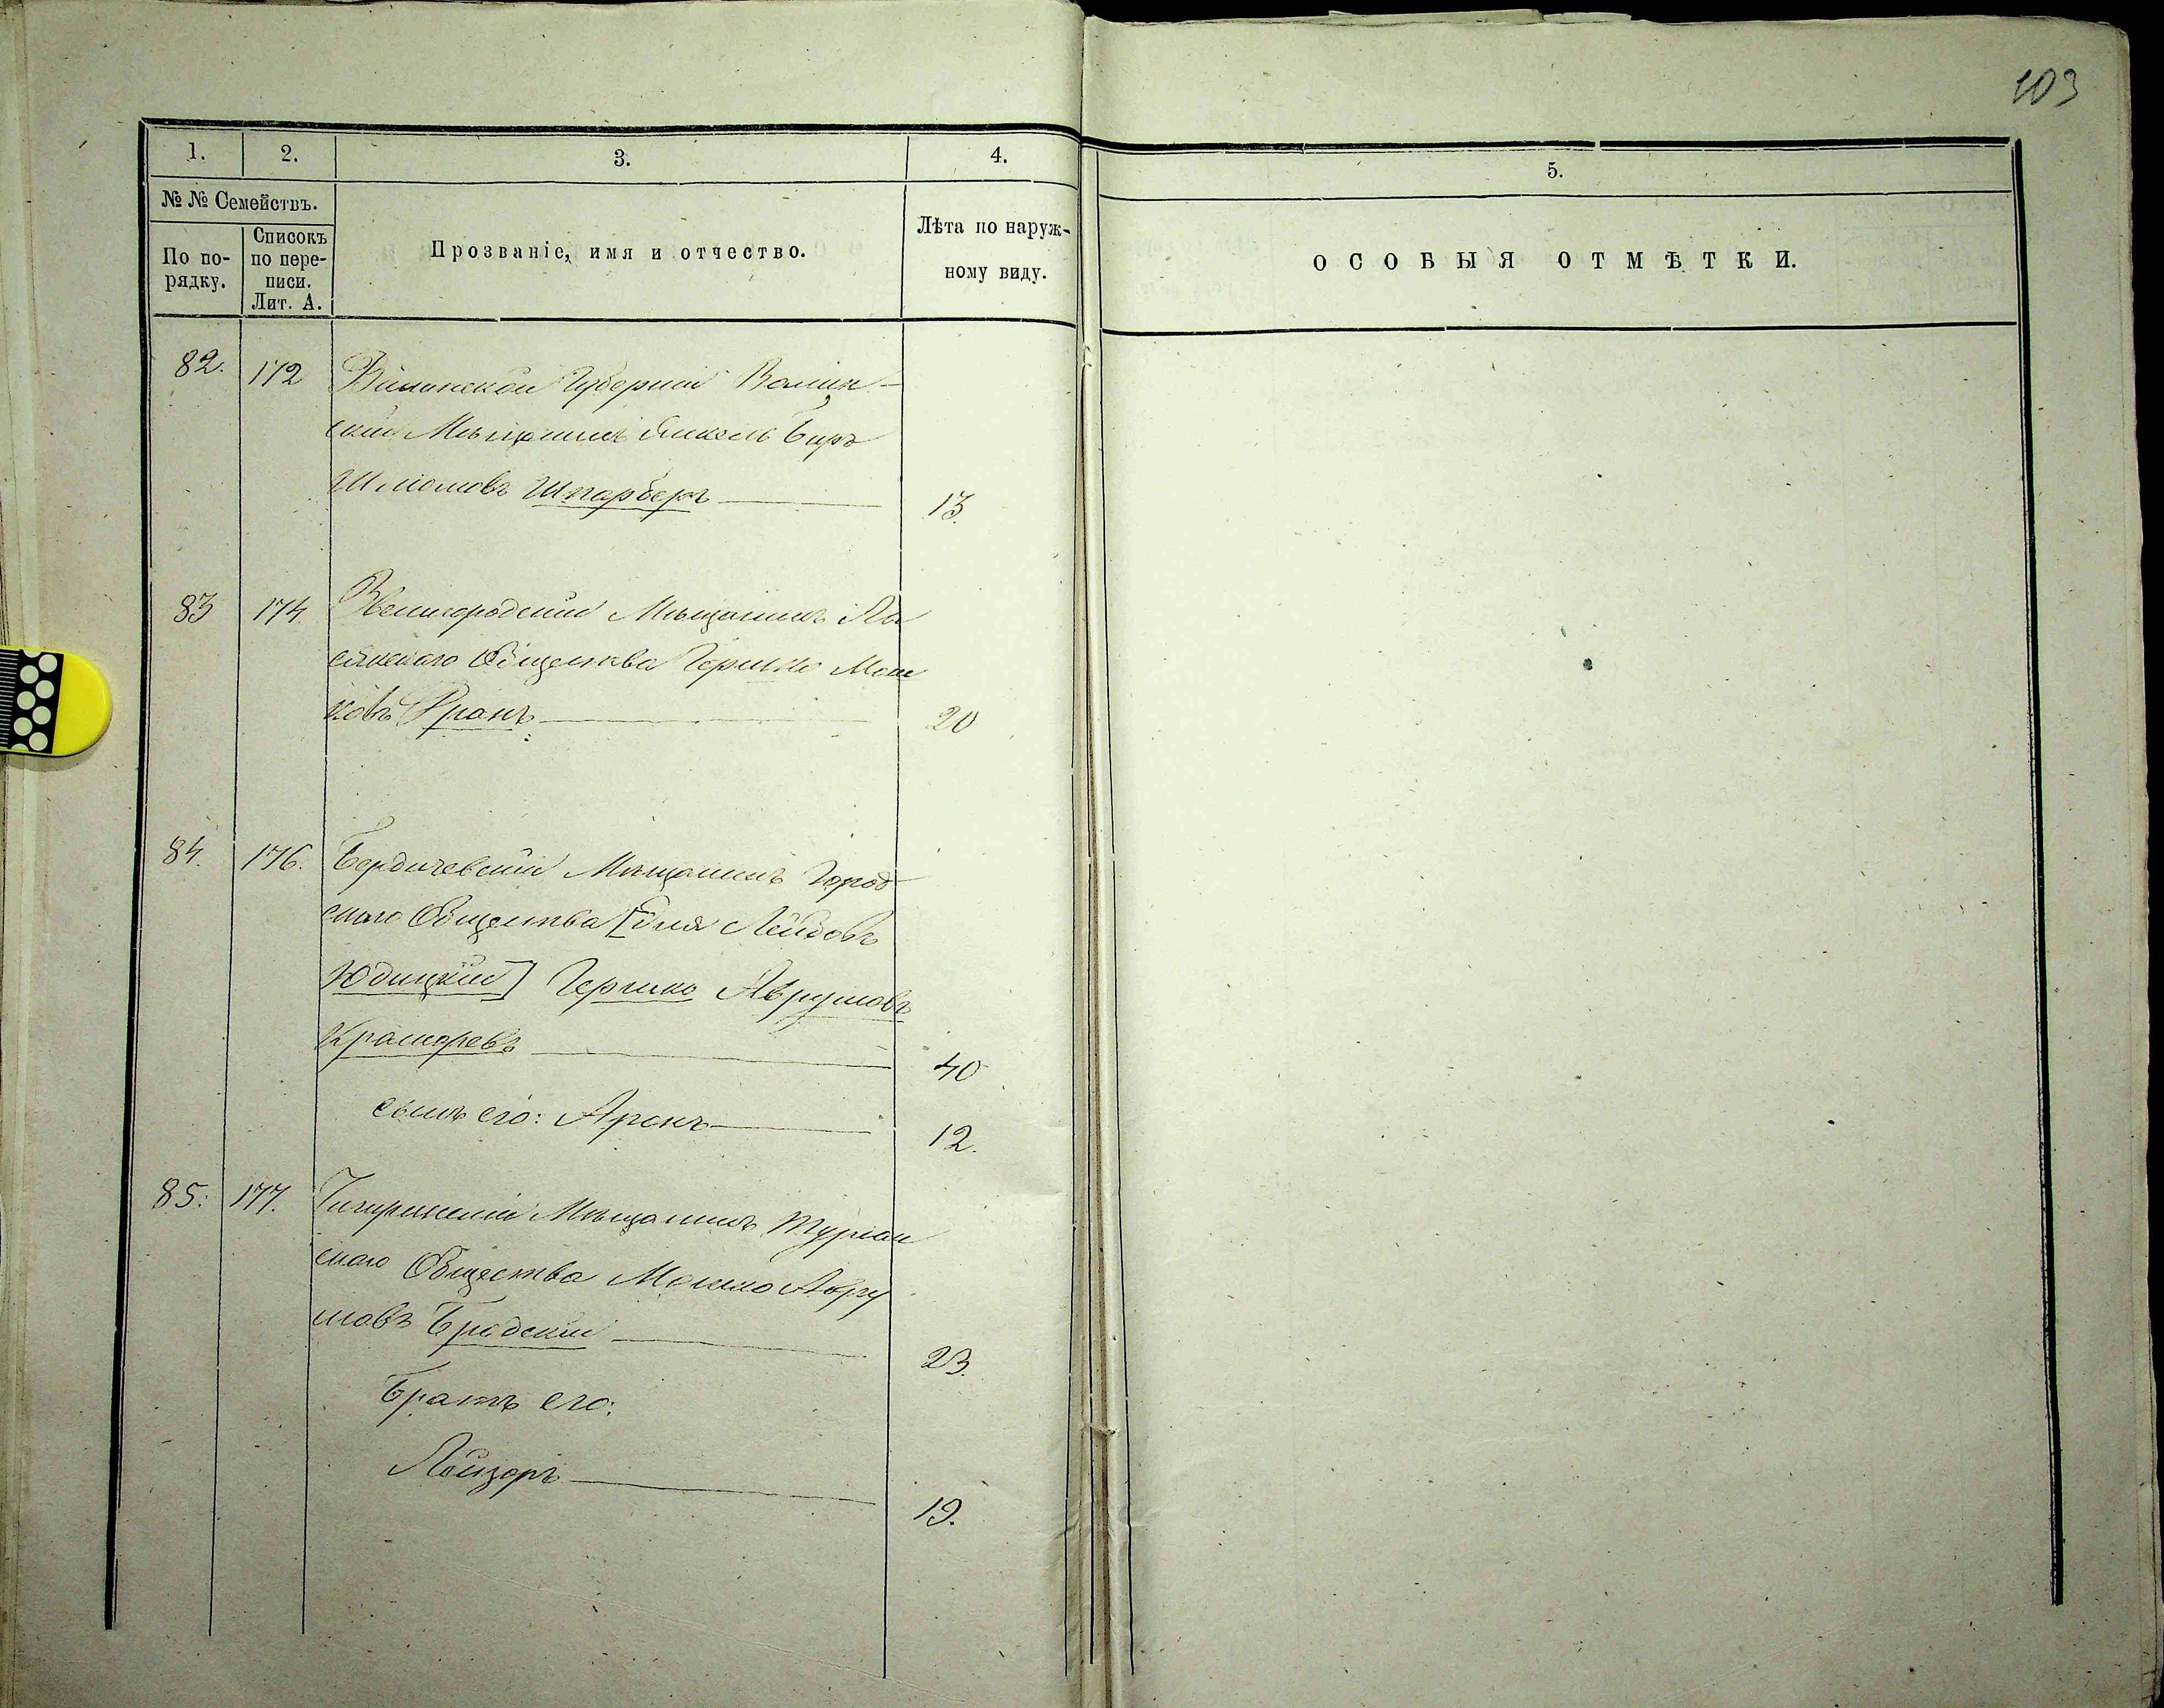 103
1. 2. 3. 4. 5.
№ № Семействъ.
По по-
рядку.
Списокъ
по пере-
писи.
Лит. А.
Прозваніе, имя и отчество.
Лѣта по наруж-
ному виду.
ОСОБЫЯ ОТМѢТКИ.
82. 172 Виленской Губерніи
скій Мѣщанинъ Янкель Беръ
Шліомовъ Шпарберъ 13.
83 174. Звенигородскій Мѣщанинъ Лы
сянскаго Общества Гершко Мош
ковъ Кранъ 20
84. 176. Бердичевскій Мѣщанинъ Город
скаго Общества [Эля Лейбовъ
Юдицкій] Гершко Аврумовъ
Крамаревъ 40
сынъ его: Аронъ 12.
85: 177. Чигиринскій Мѣщанинъ
скаго Общества Мошко Авру
мовъ Бродскій 23.
Братъ его:
Лейзоръ 19.